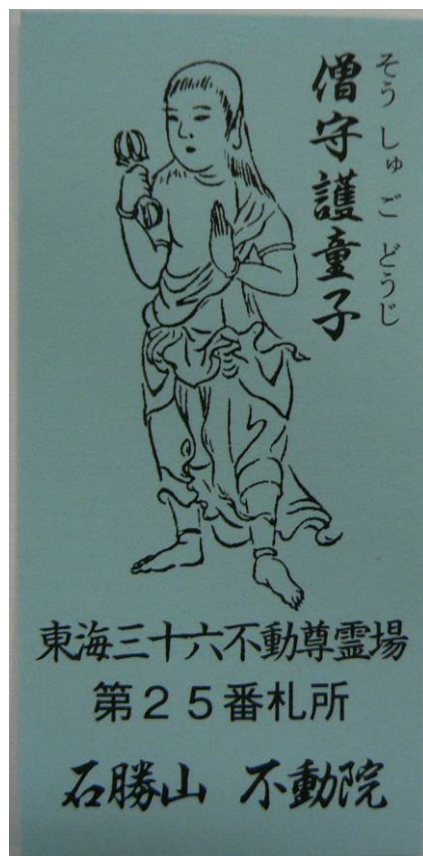 そうしゅごどうじ
僧守護童子
東海三十六不動尊霊場
第２５番札所
石勝山 不動院